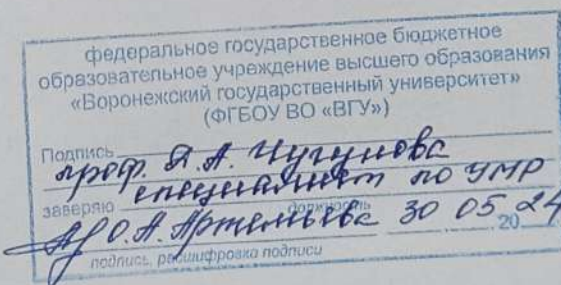 федеральное государственное бюджетное
образовательное учреждение высшего образования
«Воронежский государственный университет»
(ФГБОУ ВО «ВГУ»)
Подпись
проф. А. Чугунова
специалист по УМР
заверяю
должность
О.А. Артемьева 30 05 2024
подпись, расшифровка подписи